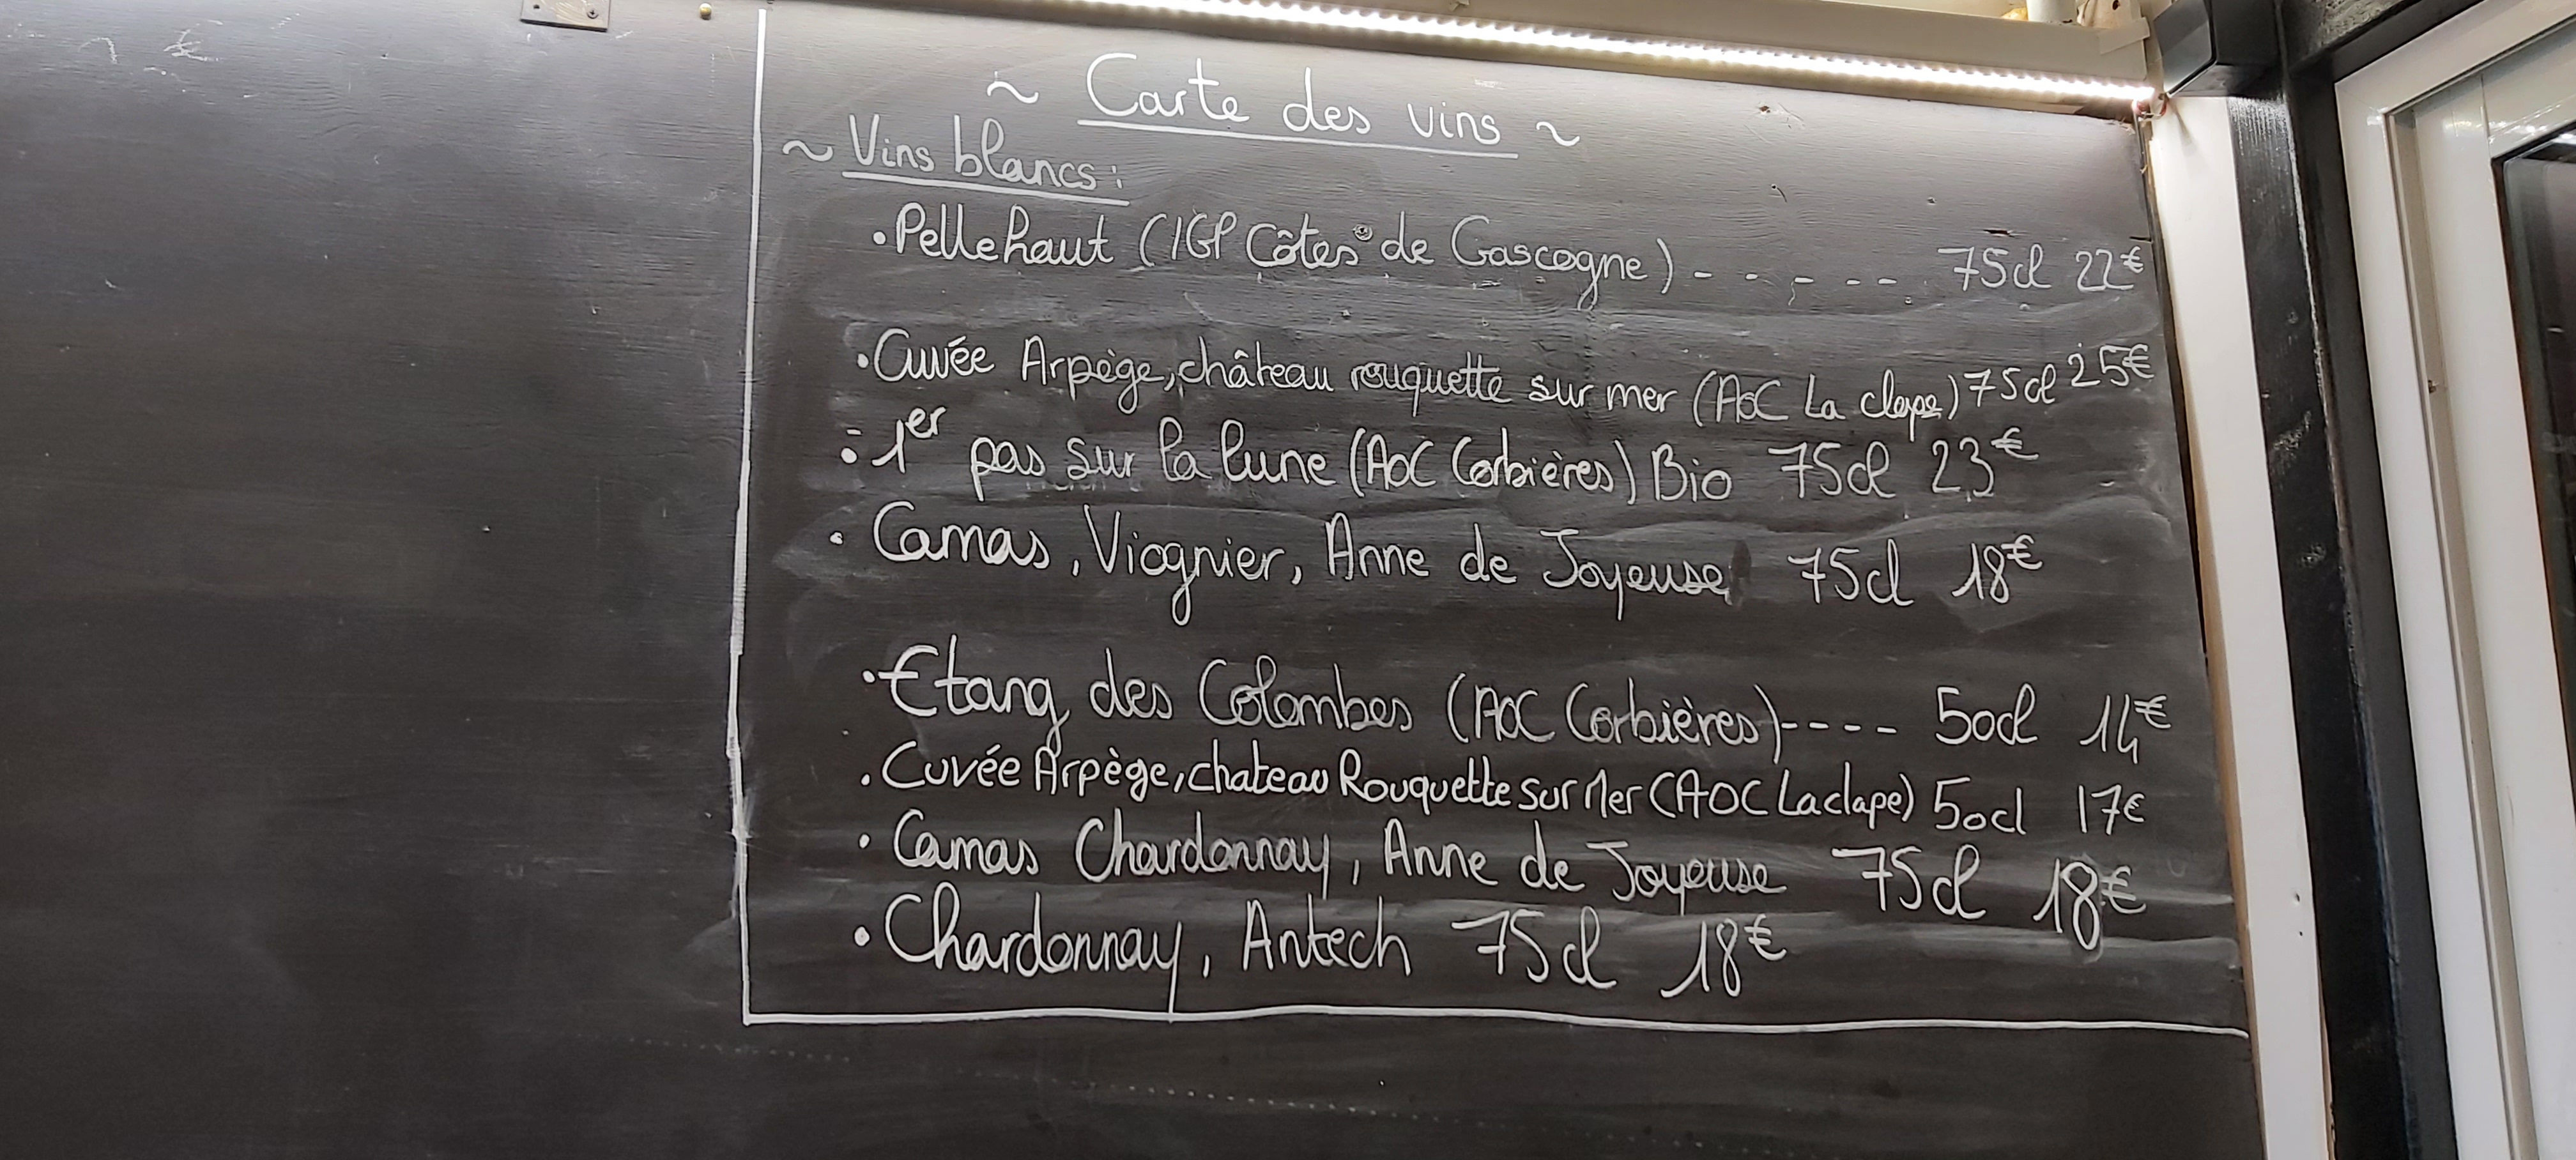 ~ Carte des vins ~
~ Vins blancs :
• Pellehaut (IGP Côtes de Gascogne) - - - - - - 75cl 22€
• Cuvée Arpège, château rouquette sur mer (AOC La clape) 75cl 25€
• 1er pas sur la lune (AOC Corbières) Bio 75cl 23€
• Camas, Viognier, Anne de Joyeuse 75cl 18€
• Etang des Colombes (AOC Corbières) - - - - 50cl 14€
• Cuvée Arpège, chateau Rouquette sur Mer (AOC La clape) 50cl 17€
• Camas Chardonnay, Anne de Joyeuse 75cl 18€
• Chardonnay, Antech 75cl 18€